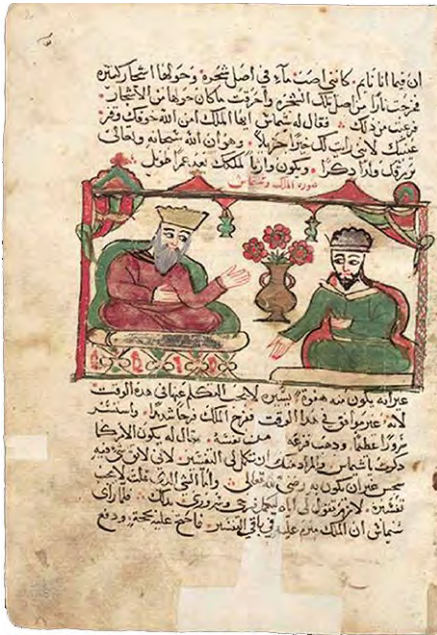 ان فيما انا نايم كاني اصب مآء في اصل شجره وحولها اشجار كثيره
فخرجت نارًا من اصل تلك الشجره واحرقت ما كان حولها من الاشجار
فرعبت من ذلك فقال له شماس ايها الملك امن الله خوفك وقر
عينك لاني رايت لك خيرًا جزيلاً وهو ان الله سبحانه وتعالى
يرزقك ولدًا ذكرًا ويكون وارثًا لملكك بعد عمرًا طويل
صورة الملك وشماس
غير انه يكون منه لا يجب التكلم عنها في هذه الوقت
لانه غير موافق في هذا الوقت ففرح الملك فرحا شديدا
سرورًا عظيمًا وذهب فزعه من نفسه قال له يكون الامر كما
ذكرت يا شماس والمراد منك ان تكمل لي التفسير لاني
غير ان يكون به رضى الله تعالى الشي الذي قلت لا يجب
تفسيره تقول لي اياه ليكمل فرحي وسروري بذلك فلما راى
شماس ان الملك مبرم عليه في باقي التفسير فاحتج عليه بحجة ودفع